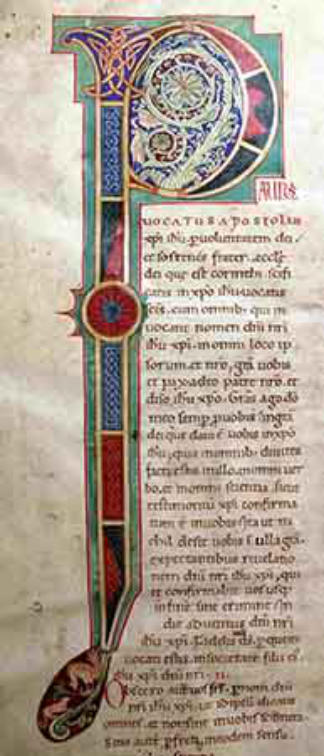 P
AULUS
UOCATUS APOSTOLUS
xpi ihu. p uoluntatem dei.
et sostenes frater. eccle
dei que est corinthi scifi
catis in xpo ihu uocatis
scis. cum omnib; qui in
uocant nomen dni nri
ihu xpi. in omni loco ip
sorum et nro, gra uobis
et pax a deo patre nro, et
dno ihu xpo. Gras ago dō
meo semp p uobis in gra
dei que data ē uobis in xpo
ihu, quia in omnib; diuites
facti estis in illo. in omni uer
bo, et in omni scientia. sicut
testimoniū xpi confirma
tum ē in uobis ita ut ni
chil desit uobis in ulla gra.
expectantibus reuelatio
nem dni nri ihu xpi, qui
et confirmabit uos usq;
in finē sine crimine. in
die aduentus dni nri
ihu xpi. Fidelis ds. p quem
uocati estis. in societate filii ei.
ihu xpi dni nri. II.
Obsecro autē uos frs. p nom dni
nri ihu xpi. ut idipsū dicatis
omnes. et non sint in uobis scismata.
Sitis autē pfecti. in eodem sensu.